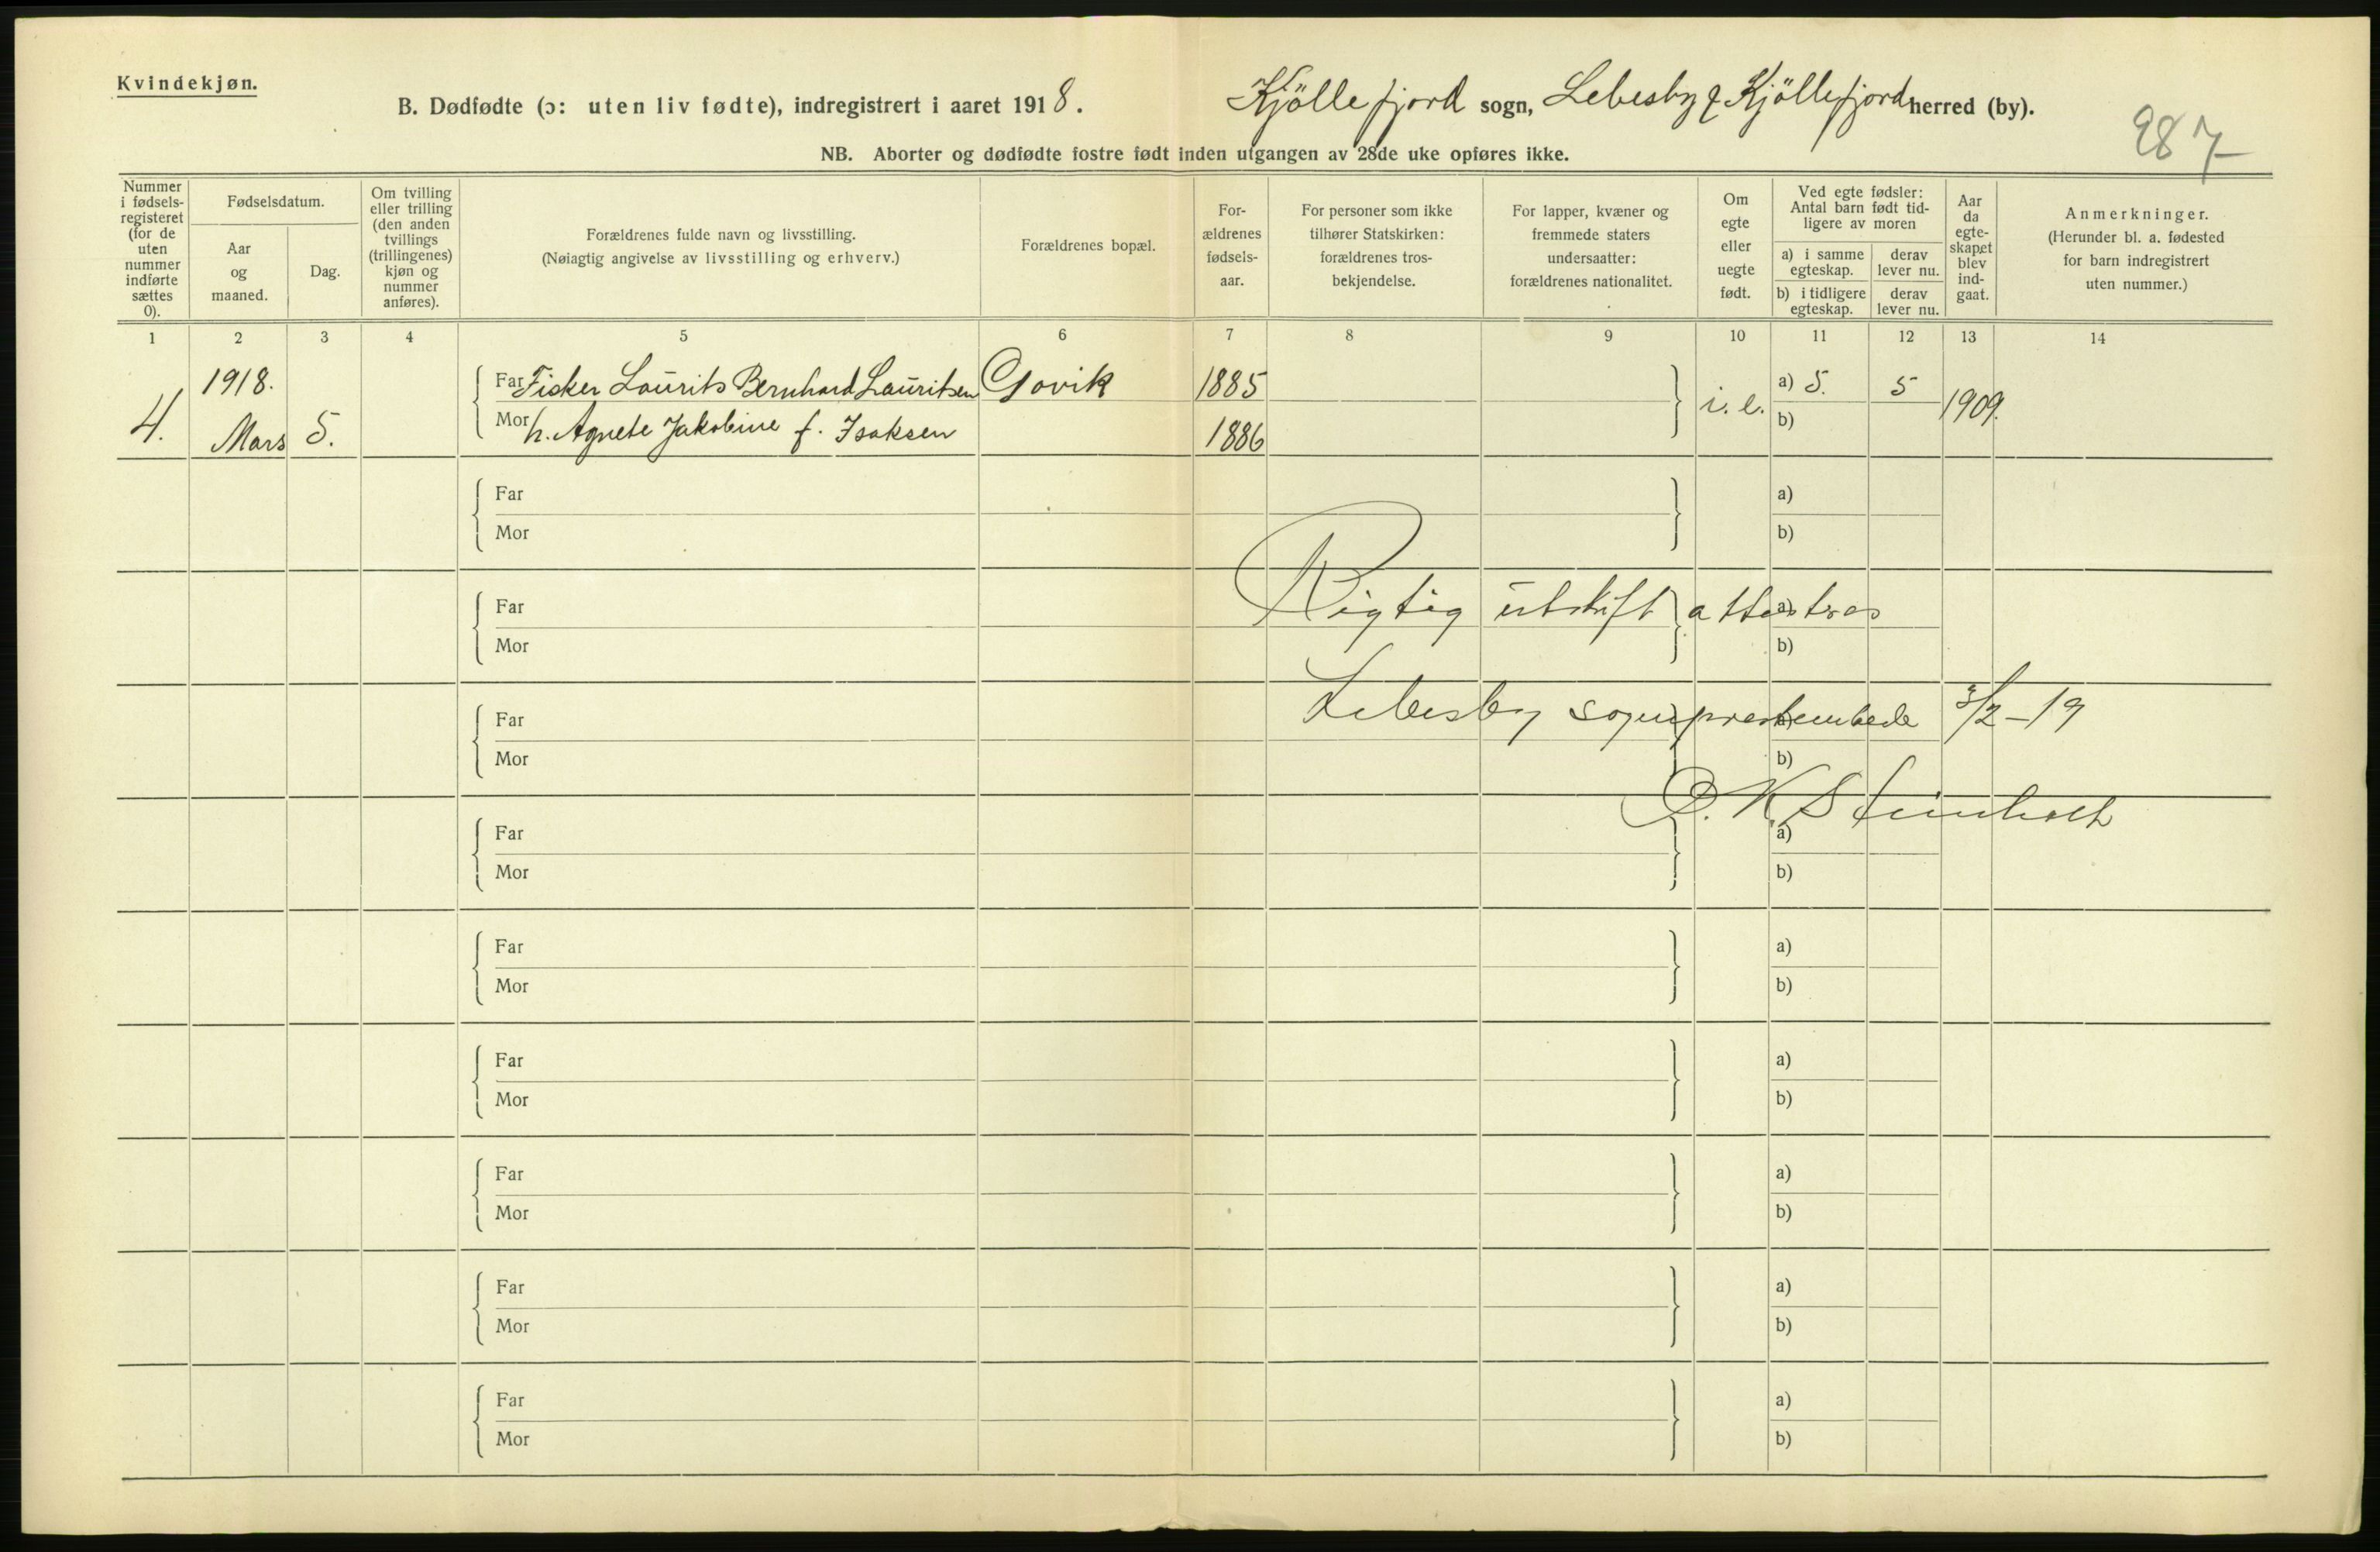 Kvindekjøn.
B. Dødfødte (ɔ: uten liv fødte), indregistrert i aaret 1918. Kjöllefjord sogn, Lebesby & Kjöllefjord herred (by).
287
NB. Aborter og dødfødte fostre født inden utgangen av 28de uke opføres ikke.
Nummer i fødsels-registeret (for de uten nummer indførte sættes 0).
Fødselsdatum.
Aar og maaned.
Dag.
Om tvilling eller trilling (den anden tvillings (trillingenes) kjøn og nummer anføres).
Forældrenes fulde navn og livsstilling.
(Nøiagtig angivelse av livsstilling og erhverv.)
Forældrenes bopæl.
For-ældrenes fødsels-aar.
For personer som ikke tilhører Statskirken: forældrenes tros-bekjendelse.
For lapper, kvæner og fremmede staters undersaatter: forældrenes nationalitet.
Om egte eller uegte født.
Ved egte fødsler: Antal barn født tid-ligere av moren
a) i samme egteskap.
derav lever nu.
b) i tidligere egteskap.
derav lever nu.
Aar da egte-skapet blev ind-gaat.
Anmerkninger.
(Herunder bl. a. fødested for barn indregistrert uten nummer.)
1 2 3 4 5 6 7 8 9 10 11 12 13 14
1918. Far Fisker Laurits Bernhard Lauritsen Govik 1885 a) 5. 5
4. Mars 5. Mor h. Agnete Jakobine f. Isaksen 1886 i. e. b) 1909.
Far a)
Mor b)
Rigtig utskrift attesteres
Far a)
Mor b)
Lebesby sogneprestembede 3/2-19
Far a)
Mor b)
O. K. Steinholt
Far a)
Mor b)
Far a)
Mor b)
Far a)
Mor b)
Far a)
Mor b)
Far a)
Mor b)
Far a)
Mor b)